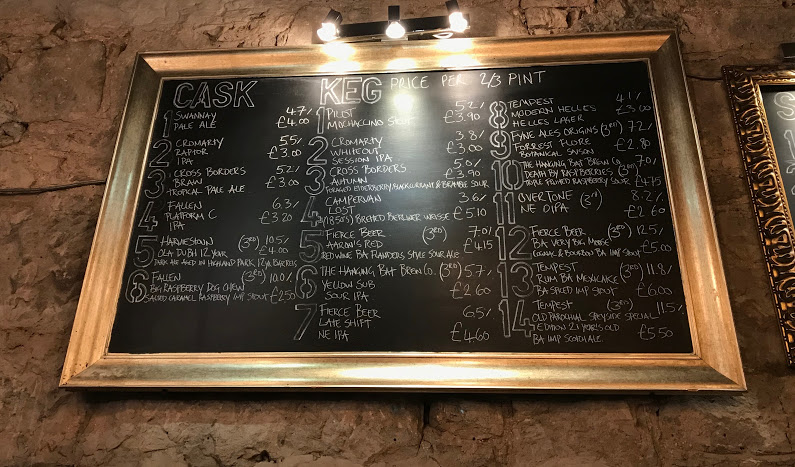 CASK
1 SWANNAY 4.7%
PALE ALE £4.00
2 CROMARTY 5.5%
RAPTOR £3.00
IPA
3 CROSS BORDERS 5.2%
BRAW £3.00
TROPICAL PALE ALE
4 FALLEN 6.3%
PLATFORM C £3.20
IPA
5 HARVIESTOUN (3RD) 10.5%
OLA DUBH 12 YEAR £4.00
DARK ALE AGED IN HIGHLAND PARK 12YR BARRELS
6 FALLEN (3RD) 10.0%
BIG RASPBERRY DOG CHEW
SALTED CARAMEL RASPBERRY IMP STOUT £2.50
KEG PRICE PER 2/3 PINT
1 PILOT 5.2%
MOCHACCINO STOUT £3.90
2 CROMARTY 3.8%
WHITEOUT £3.00
SESSION IPA
3 CROSS BORDERS 5.0%
AUTUMN £3.90
FORAGED ELDERBERRY, BLACKCURRANT & BRAMBLE SOUR
4 CAMPERVAN 3.6%
LOST £5.10
(1850'S) BRETTED BERLINER WEISSE
5 FIERCE BEER (3RD) 7.0%
AARON'S RED £4.15
RED WINE BA FLANDERS STYLE SOUR ALE
6 THE HANGING BAT BREW CO. (3RD) 5.7%
YELLOW SUB £2.60
SOUR IPA
7 FIERCE BEER 6.5%
LATE SHIFT £4.60
NE IPA
8 TEMPEST 4.1%
MODERN HELLES £3.00
HELLES LAGER
9 FYNE ALES ORIGINS (3RD) 7.2%
FORREST FLORE £2.80
BOTANICAL SAISON
10 THE HANGING BAT BREW CO. (3RD) 7.0%
DEATH BY RASPBERRIES
TRIPLE FRUITED RASPBERRY SOUR £4.75
11 OVERTONE (3RD) 8.2%
NE DIPA £2.60
12 FIERCE BEER (3RD) 12.5%
BA VERY BIG MOOSE
COGNAC & BOURBON BA IMP STOUT £5.00
13 TEMPEST (3RD) 11.8%
RUM BA MEXICAKE
BA SPICED IMP STOUT £6.00
14 TEMPEST (3RD) 11.5%
OLD PAROCHIAL SPEYSIDE SPECIAL
EDITION 21 YEARS OLD £5.50
BA IMP SCOTCH ALE